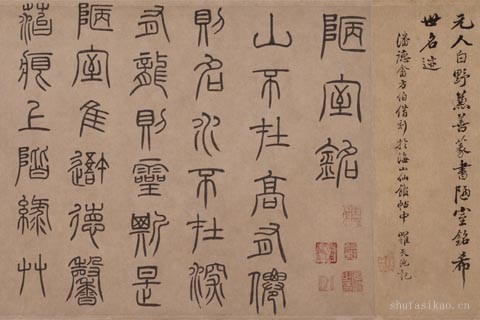 元人白野兼善篆書陋室銘希
世名迹
潘德畬方伯借刻於海山仙館帖中 羅天池記
陋室銘
山不在高有僊
則名水不在深
有龍則靈斯是
陋室惟吾德馨
苔痕上階綠艸
shufasikao.cn